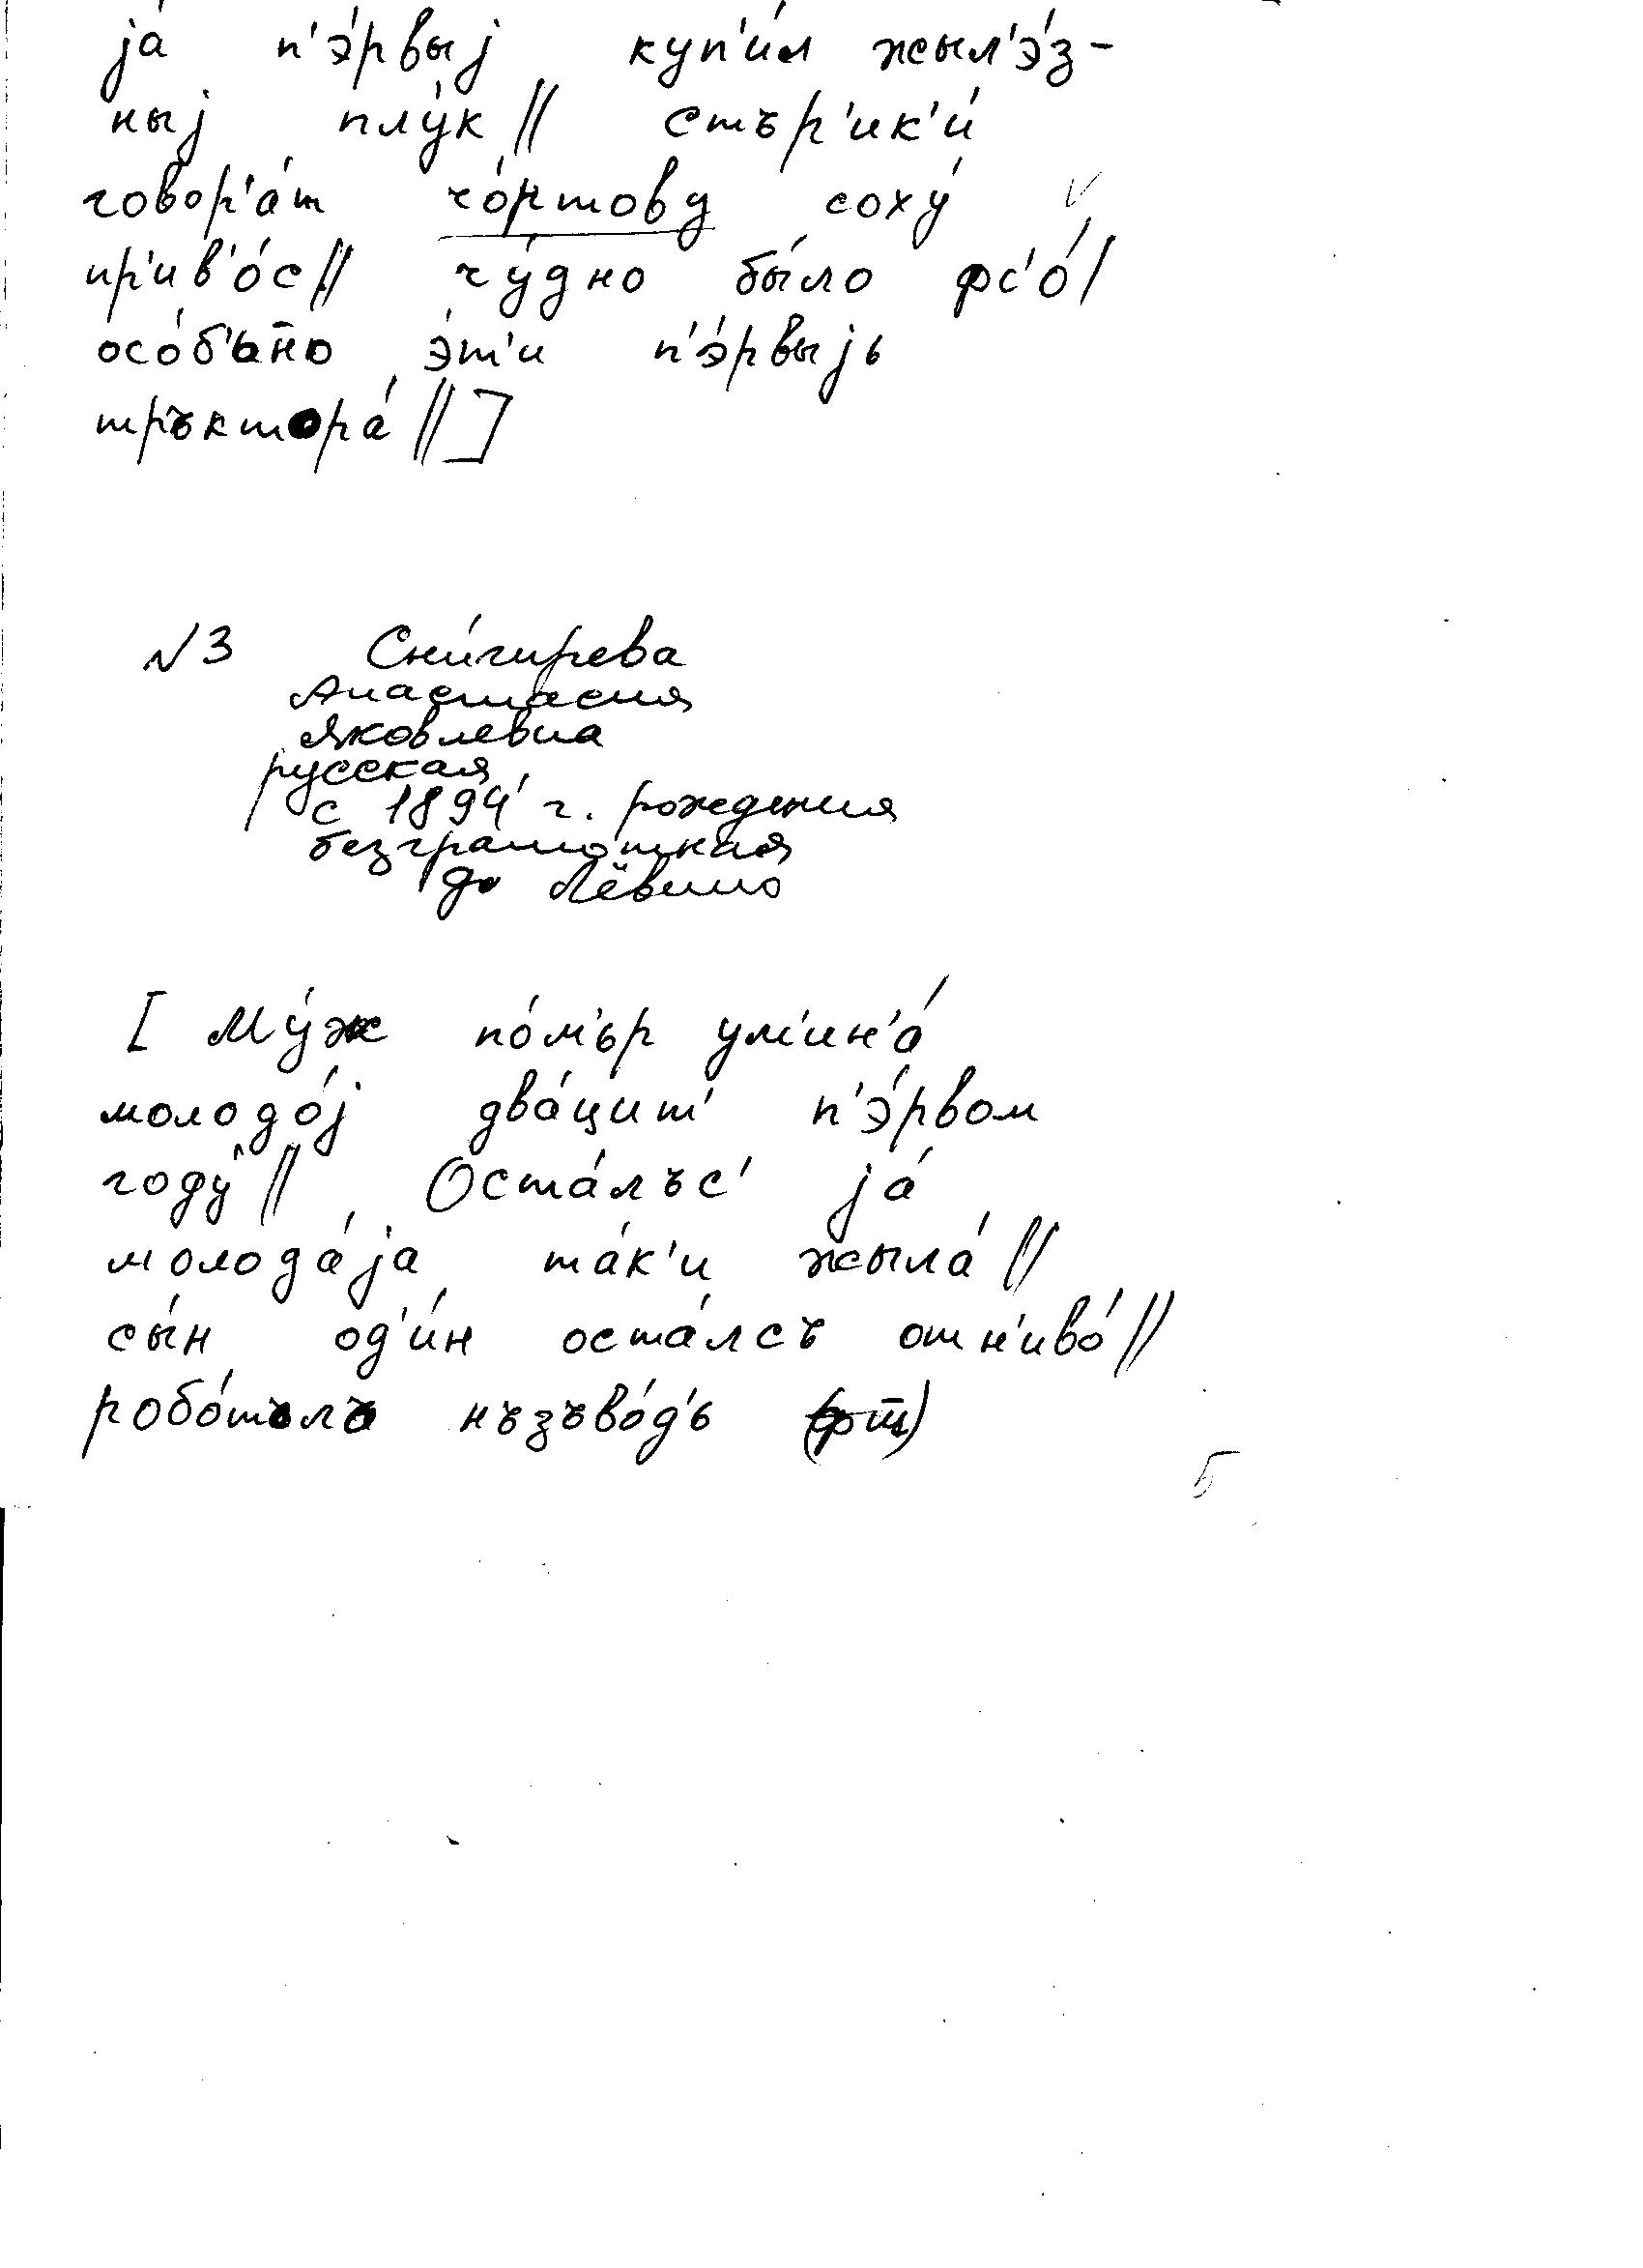 ја́ п'э́рвыј куп'и́л жыл'э́з-
ныј плу́к || стър'ик'и́
говор'а́т чо́ртову соху́ V
пр'ив'о́с || чу́дно бы́ло фс'о́ |
осо́б'ьн̄о э́т'и п'э́рвыјь
тръктора́ || ]
№3 Сни́гирева
Анастасия
Яковлевна
русская
с 1894 г. рождения
безграмотная
до Лёвино
[ Му́ж по́м'ьр ум'ин'а́
молодо́ј два́цит' п'э́рвом
году̂ || Оста́лъс' ја́
молода́ја та́к'и жыла́ ||
сы́н од'и́н оста́лсъ отн'иво́ ||
робо́тълъ нъзъво́д'ь (фт̄)
5